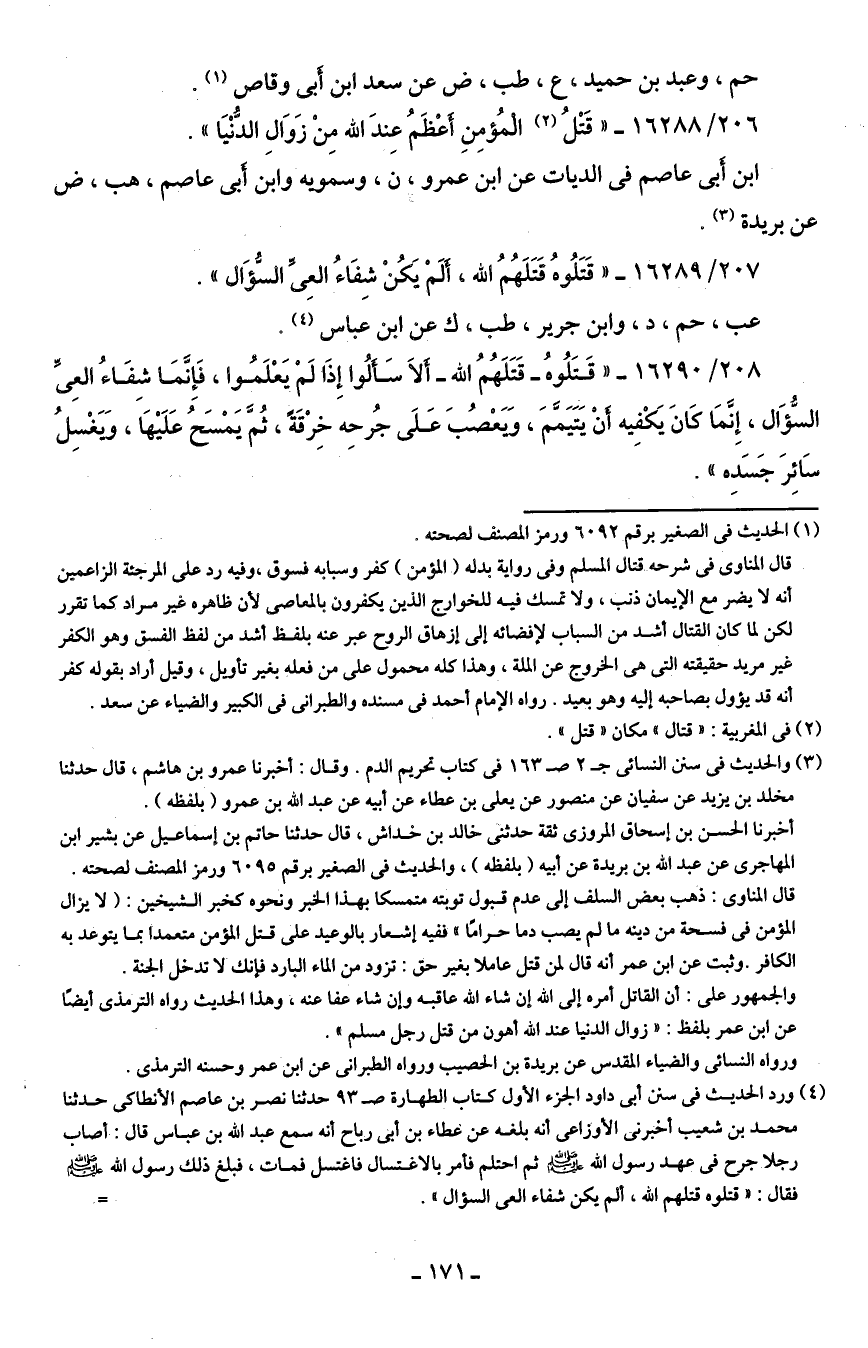 حم ، وعبد بن حميد ، ع ، طب ، ض عن سعد ابن أَبى وقاص (١) .
٢٠٦/ ١٦٢٨٨ ـ « قَتْلُ (٢) الْمُؤمِنِ أَعْظَمُ عِندَ الله مِنْ زَوَالِ الدُّنْيَا » .
ابن أَبى عاصم فى الديات عن ابن عمرو ، ن ، وسمويه وابن أَبى عاصم ، هب ، ض
عن بريدة (٣) .
٢٠٧/ ١٦٢٨٩ ـ « قَتَلُوهُ قَتَلَهُمُ الله ، أَلَمْ يَكُنْ شِفَاءُ العِىِّ السُّؤَال » .
عب ، حم ، د ، وابن جرير ، طب ، ك عن ابن عباس (٤) .
٢٠٨/ ١٦٢٩٠ ـ « قَتَلُوهُ ـ قَتَلَهُمُ الله ـ أَلاَ سَأَلُوا إِذَا لَمْ يَعْلَمُوا ، فَإِنَّمَا شِفَاءُ العِىِّ
السُّؤَال ، إِنَّمَا كَانَ يَكْفِيه أَنْ يَتَيَمَّمَ ، وَيَعْصُبَ عَلَى جُرحِه خِرْقَةً ، ثُمَّ يَمْسَحُ عَلَيْهَا ، وَيَغْسِلُ
سَائِرَ جَسَدِه » .
(١) الحديث فى الصغير برقم ٦٠٩٢ ورمز المصنف لصحته .
قال المناوى فى شرحه قتال المسلم وفى رواية بدله ( المؤمن ) كفر وسبابه فسوق ،وفيه رد على المرجئة الزاعمين
أنه لا يضر مع الإيمان ذنب ، ولا تمسك فيه للخوارج الذين يكفرون بالمعاصى لأن ظاهره غير مراد كما تقرر
لكن لما كان القتال أشد من السباب لإفضائه إلى إزهاق الروح عبر عنه بلفظ أشد من لفظ الفسق وهو الكفر
غير مريد حقيقته التى هى الخروج عن الملة ، وهذا كله محمول على من فعله بغير تأويل ، وقيل أراد بقوله كفر
أنه قد يؤول بصاحبه إليه وهو بعيد . رواه الإمام أحمد فى مسنده والطبرانى فى الكبير والضياء عن سعد .
(٢) فى المغربية : « قتال » مكان « قتل » .
(٣) والحديث فى سنن النسائى جـ ٢ صـ ١٦٣ فى كتاب تحريم الدم . وقال : أخبرنا عمرو بن هاشم ، قال حدثنا
مخلد بن يزيد عن سفيان عن منصور عن يعلى بن عطاء عن أبيه عن عبد الله بن عمرو ( بلفظه ) .
أخبرنا الحسن بن إسحاق المروزى ثقة حدثنى خالد بن خداش ، قال حدثنا حاتم بن إسماعيل عن بشير ابن
المهاجرى عن عبد الله بن بريدة عن أبيه ( بلفظه ) ، والحديث فى الصغير برقم ٦٠٩٥ ورمز المصنف لصحته .
قال المناوى : ذهب بعض السلف إلى عدم قبول توبته متمسكا بهذا الخبر ونحوه كخبر الشيخين : ( لا يزال
المؤمن فى فسحة من دينه ما لم يصب دما حرامًا » ففيه إشعار بالوعيد على قتل المؤمن متعمدا بما يتوعد به
الكافر .وثبت عن ابن عمر أنه قال لمن قتل عاملا بغير حق : تزود من الماء البارد فإنك لا تدخل الجنة .
والجمهور على : أن القاتل أمره إلى الله إن شاء الله عاقبه وإن شاء عفا عنه ، وهذا الحديث رواه الترمذى أيضًا
عن ابن عمر بلفظ : « زوال الدنيا عند الله أهون من قتل رجل مسلم » .
ورواه النسائى والضياء المقدس عن بريدة بن الحصيب ورواه الطبرانى عن ابن عمر وحسنه الترمذى .
(٤) ورد الحديث فى سنن أبى داود الجزء الأول كتاب الطهارة صـ ٩٣ حدثنا نصر بن عاصم الأنطاكى حدثنا
محمد بن شعيب أخبرنى الأوزاعى أنه بلغه عن عطاء بن أبى رباح أنه سمع عبد الله بن عباس قال : أصاب
رجلا جرح فى عهد رسول الله ﷺ ثم احتلم فأمر بالاغتسال فاغتسل فمات ، فبلغ ذلك رسول الله ﷺ
فقال : « قتلوه قتلهم الله ، ألم يكن شفاء العى السؤال » . =
ـ ١٧١ ـ